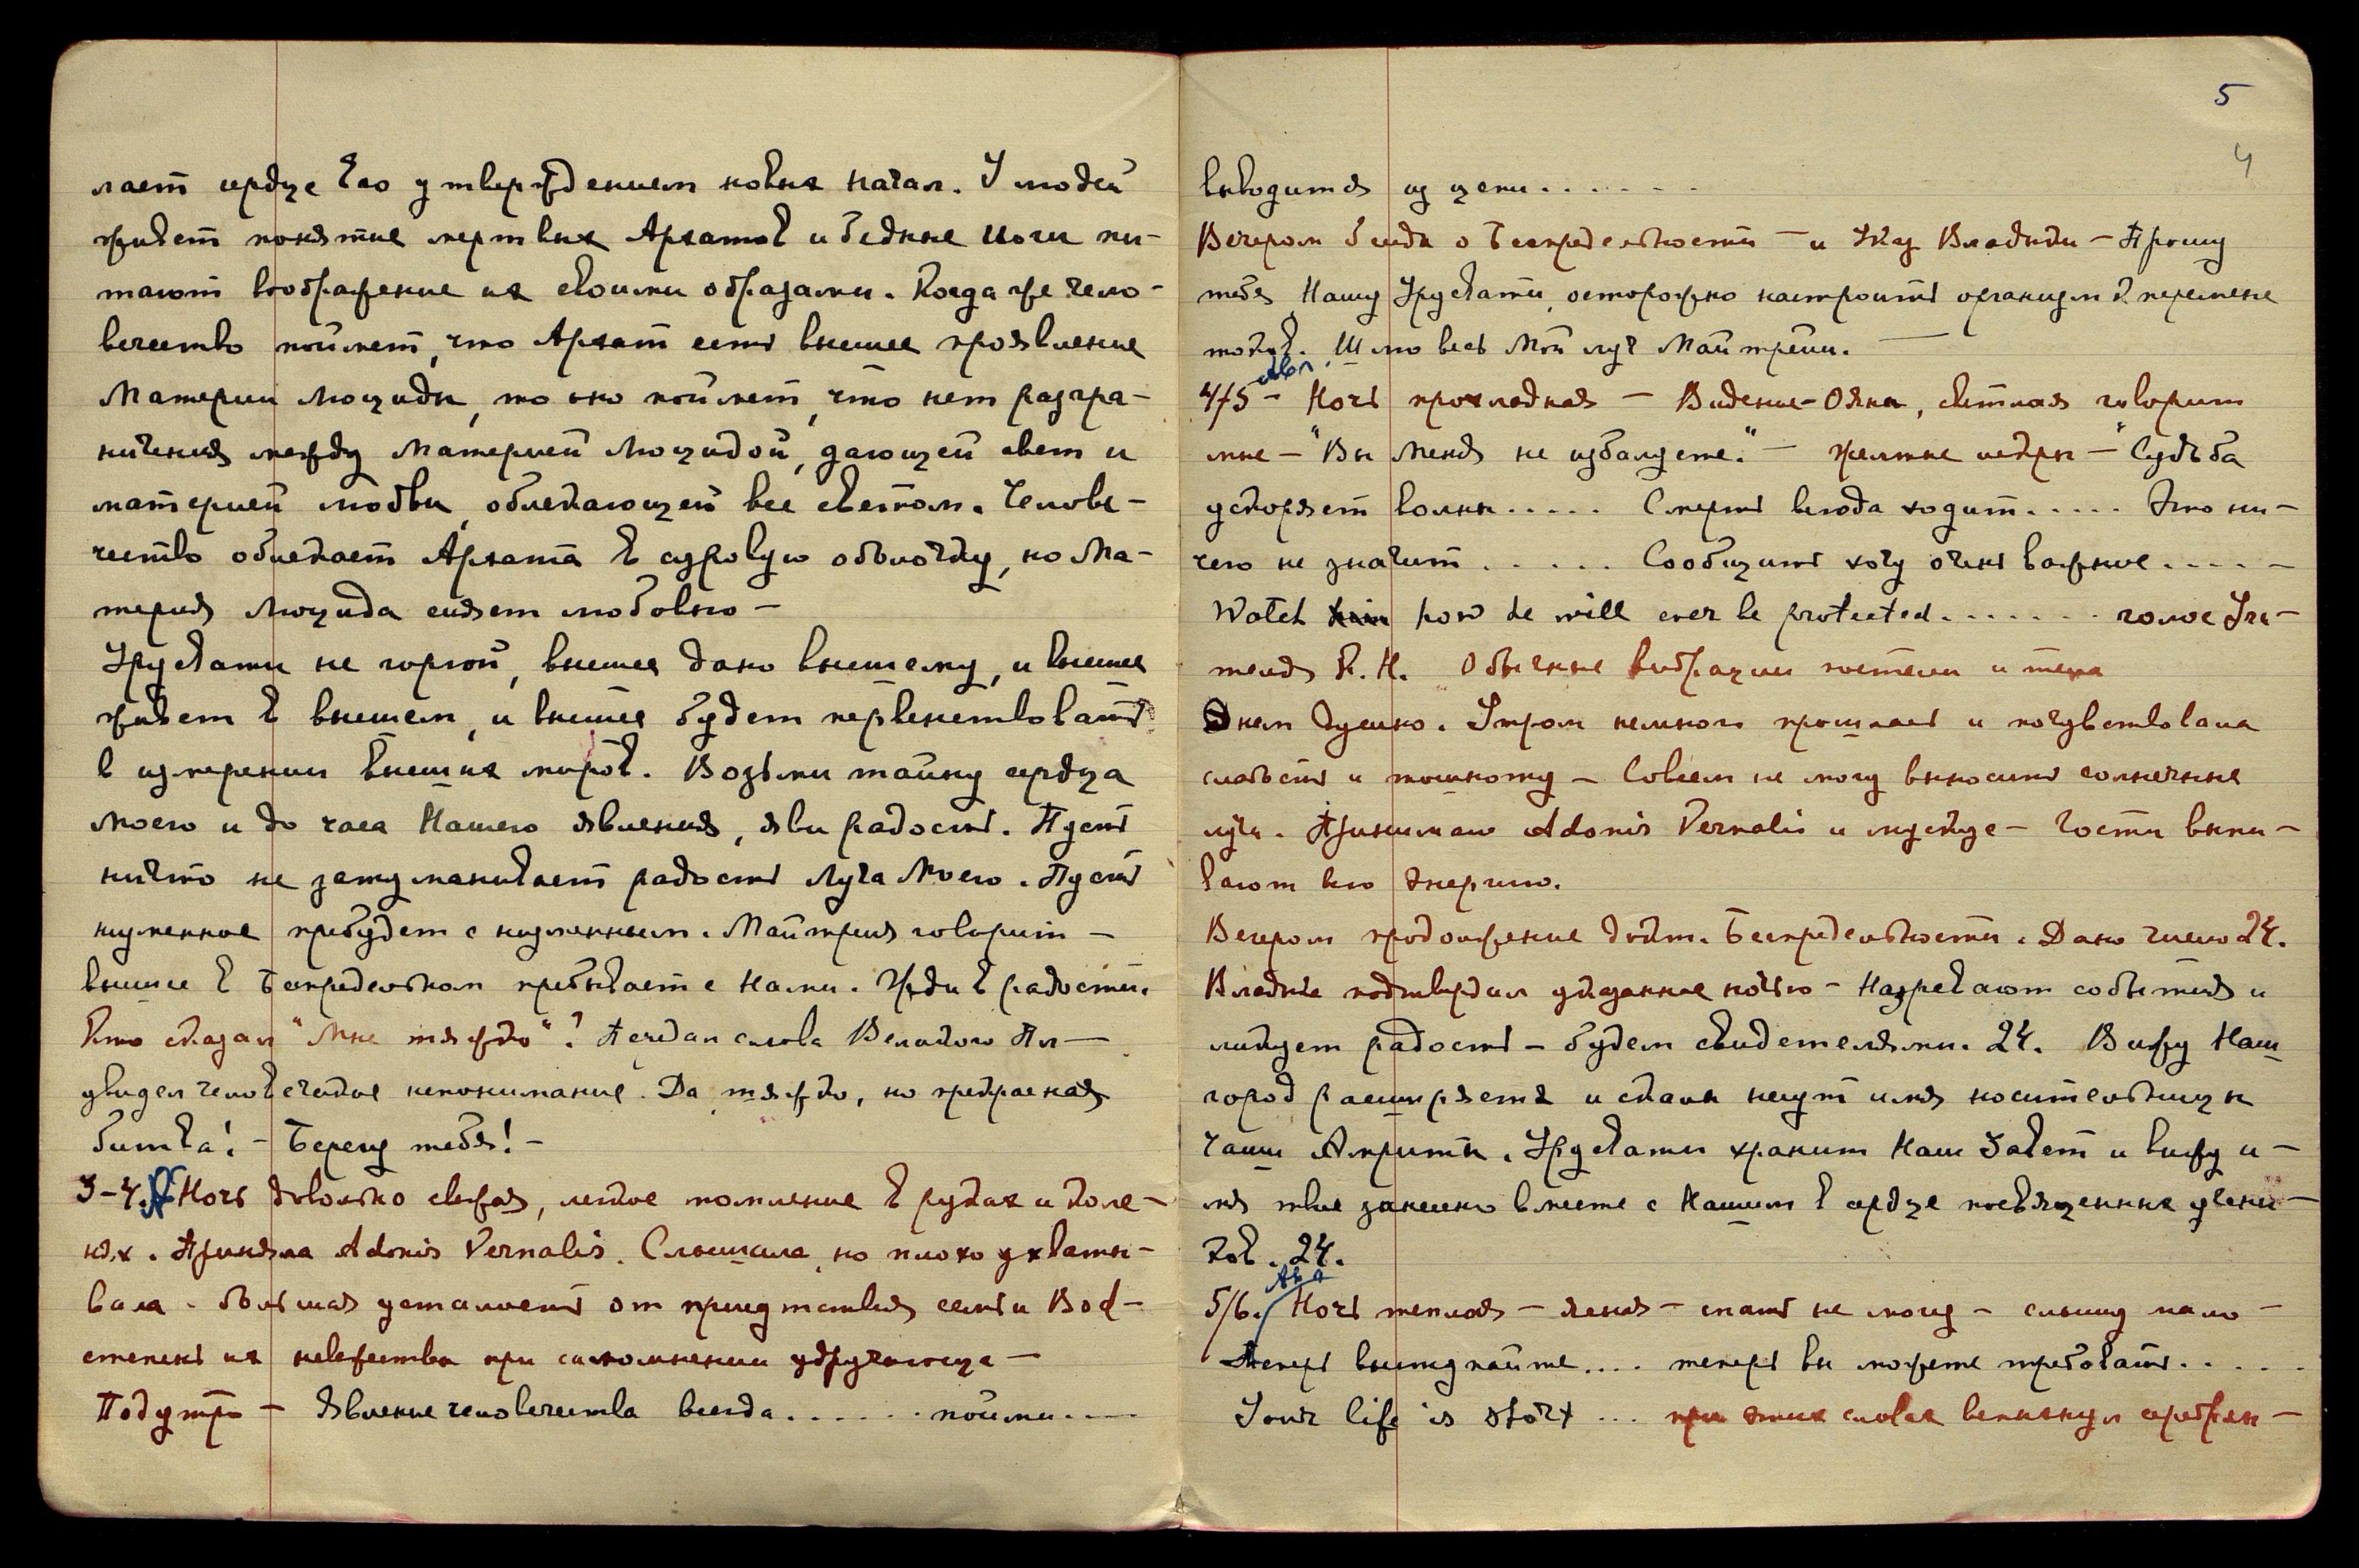 лает сердце Его утверждением новых начал. У людей
живет понятие мертвых Архатов и бедные йоги пи-
тают воображение их своими образами. Когда же чело-
вечество поймет, что Архат есть высшее проявление
Материи Люциды, то оно поймет, что нет разгра-
ничения между Материей Люцидой, дающей свет и
материей любви, облекающей все светом. Челове-
чество облекает Архата в суровую оболочку, но Ма-
терия Люцида сияет любовью –
Урусвати не горюй, высшее дано высшему, и высшее
живет в высшем, и высшее будет первенствовать
в измерении высших миров. Возьми тайну сердца
моего и до часа Нашего явления, яви радость. Пусть
ничто не затуманивает радость Луча Моего. Пусть
низменное пребудет с низменным. Майтрейя говорит –
высшее в Беспредельном пребывает с Нами. Жди в радости.
Кто сказал "Мне тяжко"? Передал слова Великого Пл–
увидел человеческое непонимание. Да тяжко, но прекрасная
битва! – Берегу тебя! –
3-4. Ночь довольно свежая, легкое томление в руках и коле-
нях. Приняла Adonis Vernalis. Слышала, но плохо ухваты-
вала. большая усталость от присутствия семьи Вод-
степень их невежества при самомнении удручающа –
Под утро – Явление человечества всегда...... пойми....
5
4
выводится из цепи.......
Вечером беседа о Беспредельности – и Указ Владыки – Прошу
тебя, Нашу Урусвати, осторожно настроить организм к перемене
токов. Шлю весь Мой луч Майтрейи. –
4/5 – Апр. Ночь прохладная – Видение – Ояна, светлая говорит
мне – "Вы меня не избалуете." – желтые искры – "Судьба
ускоряет волны..... Смерть всюда ходит..... Это ни-
чего не значит..... Сообщить хочу очень важное.....
Watch him how he will ever be protected....... голос Учи-
теля К.Н. Обычные вибрации постели и тела
Днем душно. Утром немного прошлась и почувствовала
слабость и тошноту – Совсем не могу выносить солнечные
лучи. Принимаю Adonis Vernalis и мускус – Гости выпи-
вают всю энергию.
Вечером продолжение дикт. Беспредельности. Дано число 24.
Владыка подтвердил указанное ночью – Назревают события и
ликует радость – будем свидетелями. 24. Вижу Наш
город расширяется и скалы несут имя носительницы
чаши Амриты. Урусвати хранит Наш Завет и вижу и-
мя твое занесено вместе с Нашим в сердце посвященных учени-
ков. 24.
5/6. Апр Ночь теплая – ясная – спать не могу – слышу мало –
Теперь выступайте.... теперь вы можете требовать.....
Your life is short ... при этих словах вспыхнул серебрян-